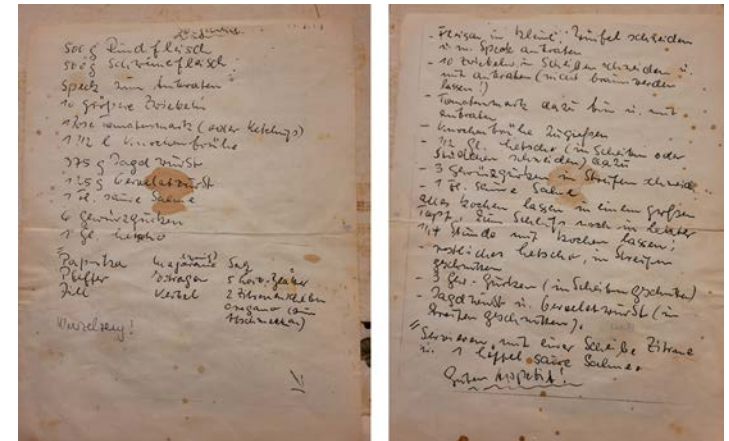 500 g Rindfleisch
500 g Schweinefleisch
Speck zum Anbraten
10 größere Zwiebeln
1 Dose Tomatenmark (oder Ketchup)
1 1/2 l Knochenbrühe
375 g Jagdwürst
125 g Cervelatwürst
1 Fl. saüre Sahne
6 Gewürzgürken
1 Gl. Letscho
Paprika Majoran Salz
Pfeffer Estragon 5 Lorb. Blätter
Dill Kerbel 2 Zitronenscheiben
Oregano (zum
Abschmecken)
Wurzelzeug!
- Fleisch in kleine Würfel schneiden
u. m. Speck anbraten
- 10 Zwiebeln in Scheiben schneiden u.
mit anbraten (nicht braun werden
lassen!)
- Tomatenmark dazu tun u. mit
anbraten
- Knochenbrühe zugießen
- 1/2 Gl. Letscho (in Scheiben oder
Stückchen schneiden) dazu
- 3 Gewürzgürken in Streifen schneiden
- 1 Fl. saüre Sahne
alles kochen lassen in einem großen
Topf, zum Schluß noch in letzter
1/4 Stunde mit kochen lassen:
- restliches Letscho, in Streifen
geschnitten
- 3 Gew. Gürken (in Scheiben geschnitten)
- Jagdwürst u. Cervelatwürst (in
Streifen geschnitten).
Servieren mit einer Scheibe Zitrone
u. 1 Löffel saüre Sahne
Guten Appetit!